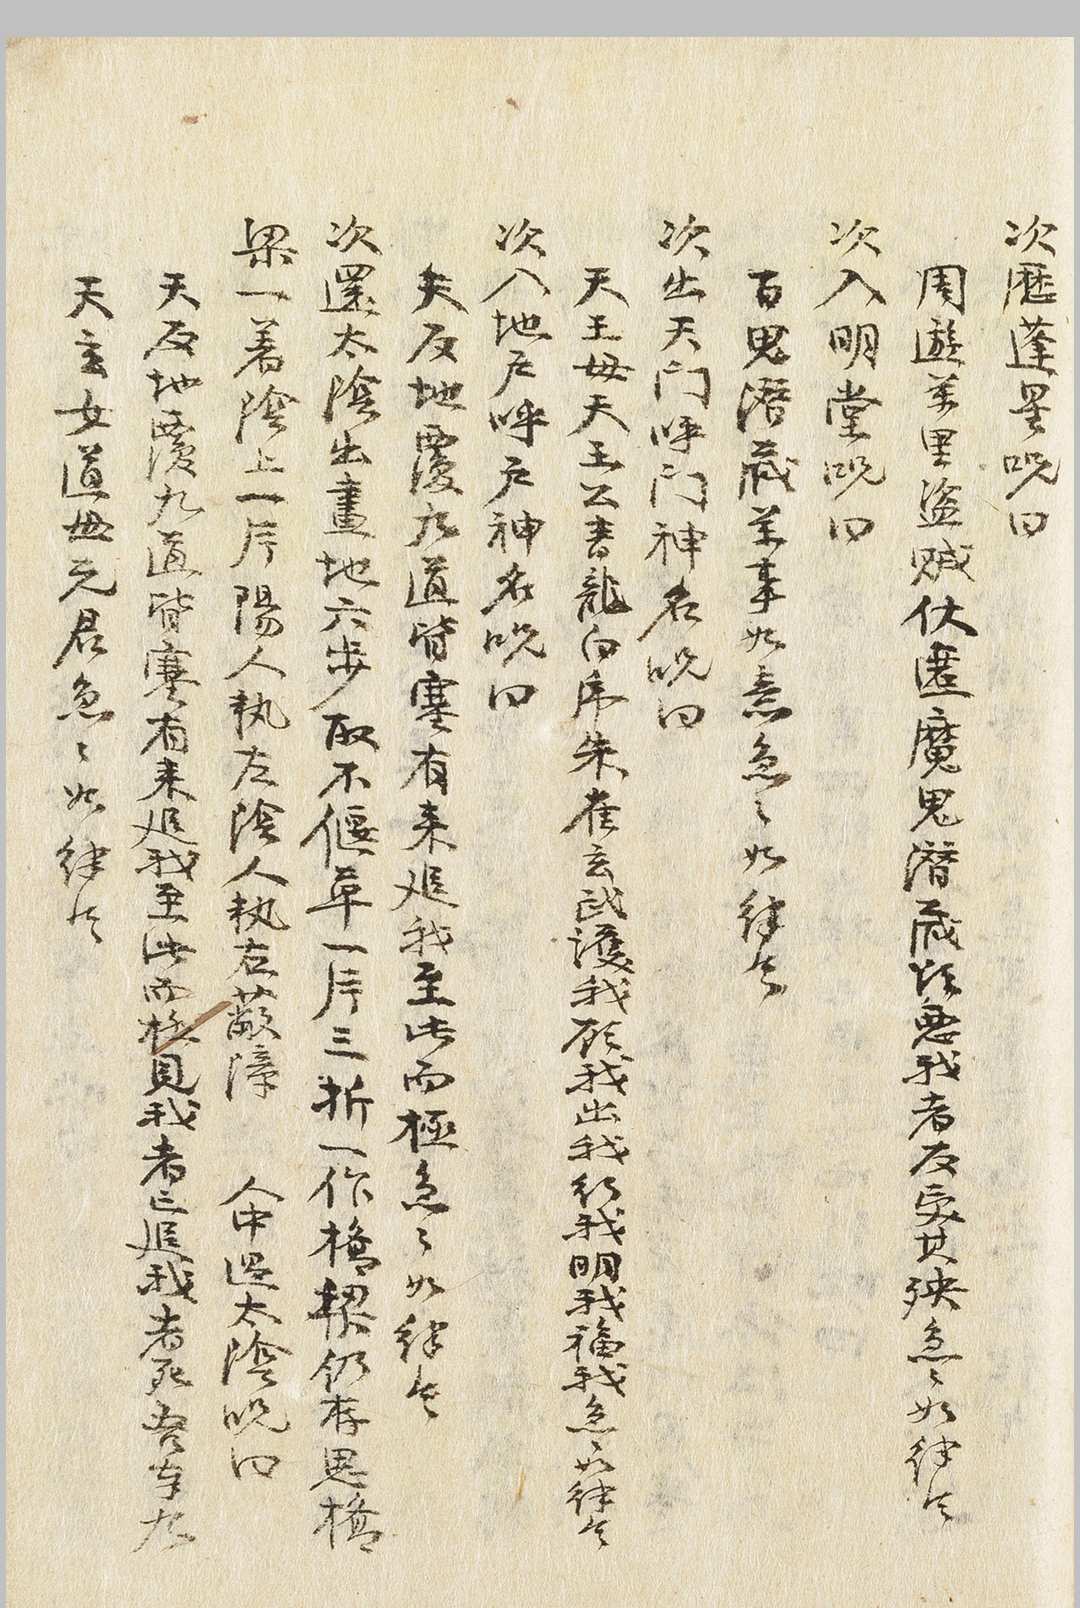 次歴蓬星呪曰
周遊万里盗賊伏匿魔鬼潜蔵　悪我者反受其殃急〻如律令
次入明堂呪曰
百鬼潜蔵万事如意急〻如律令
次出天門呼門神名呪曰
天王母天王公青龍白虎朱雀玄武護我顧我出我行我明我福我急〻如律令
次入地戸呼戸神名呪曰
天反地覆九道皆塞有来追我至此而極急〻如律令
次還太陰出畫地六歩取不偃草一片三折一作橋梁仍存思橋
梁一着陰上一片陽人執左陰人執右蔽障　人中過太陰呪曰
天反地覆九道皆塞有来追我至此而極見我者亡追我者死吾奉九
天玄女道母元君急〻如律令